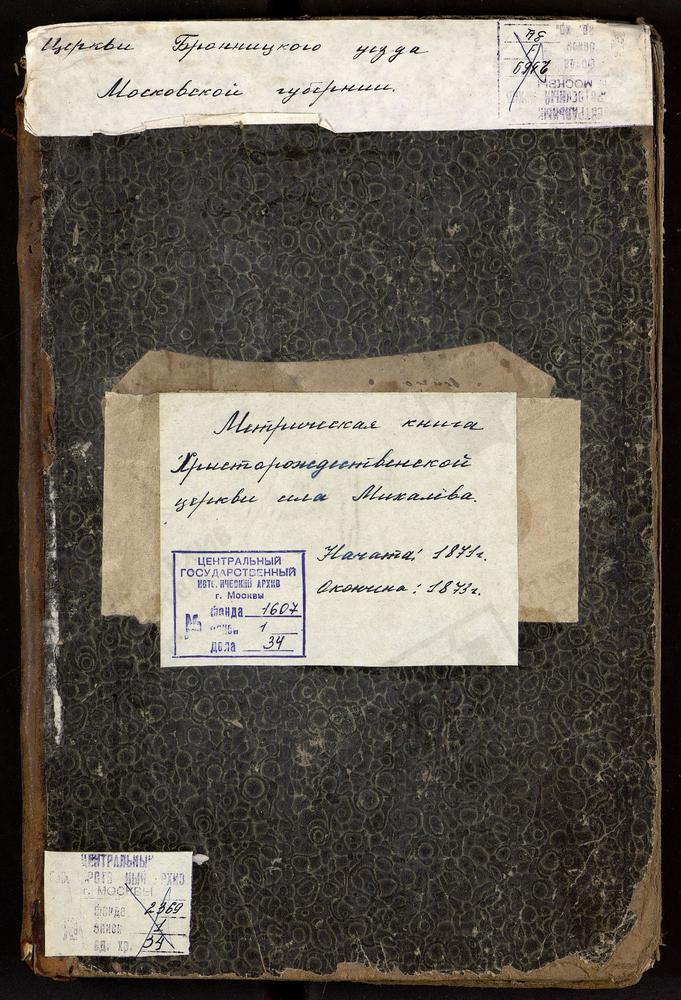 Церкви Бронницкого уезда
Московской губернии.
Метрическая книга
Христорождественской
церкви села Михалёва.
Начата: 1871г.
Окончена: 1873г.
ЦЕНТРАЛЬНЫЙ
ГОСУДАРСТВЕННЫЙ
ИСТОРИЧЕСКИЙ АРХИВ
г. Москвы
№ фонда 1607
описи 1
дела 34
ЦЕНТРАЛЬНЫЙ
АРХИВ
г. МОСКВЫ
фонда 2369
описи 1
ед. хр. 34